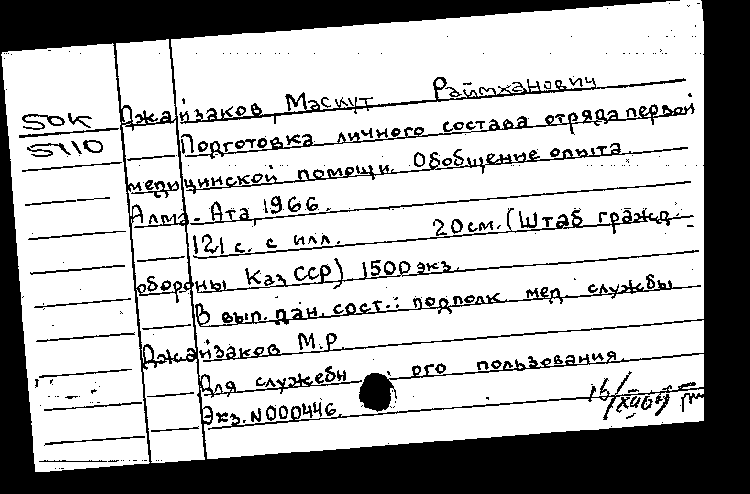 50К Джайзаков, Маскут Раймханович
5Ч10 Подготовка личного состава отряда первой
медицинской помощи. Обобщение опыта.
Алма-Ата, 1966.
121 с. с илл. 20см. (Штаб гражд.
обороны Каз ССР) 1500 экз.
В вып. дан. сост.: подполк. мед. службы
Джайзаков М.Р
Для служебн ого пользования.
Экз. N000446.